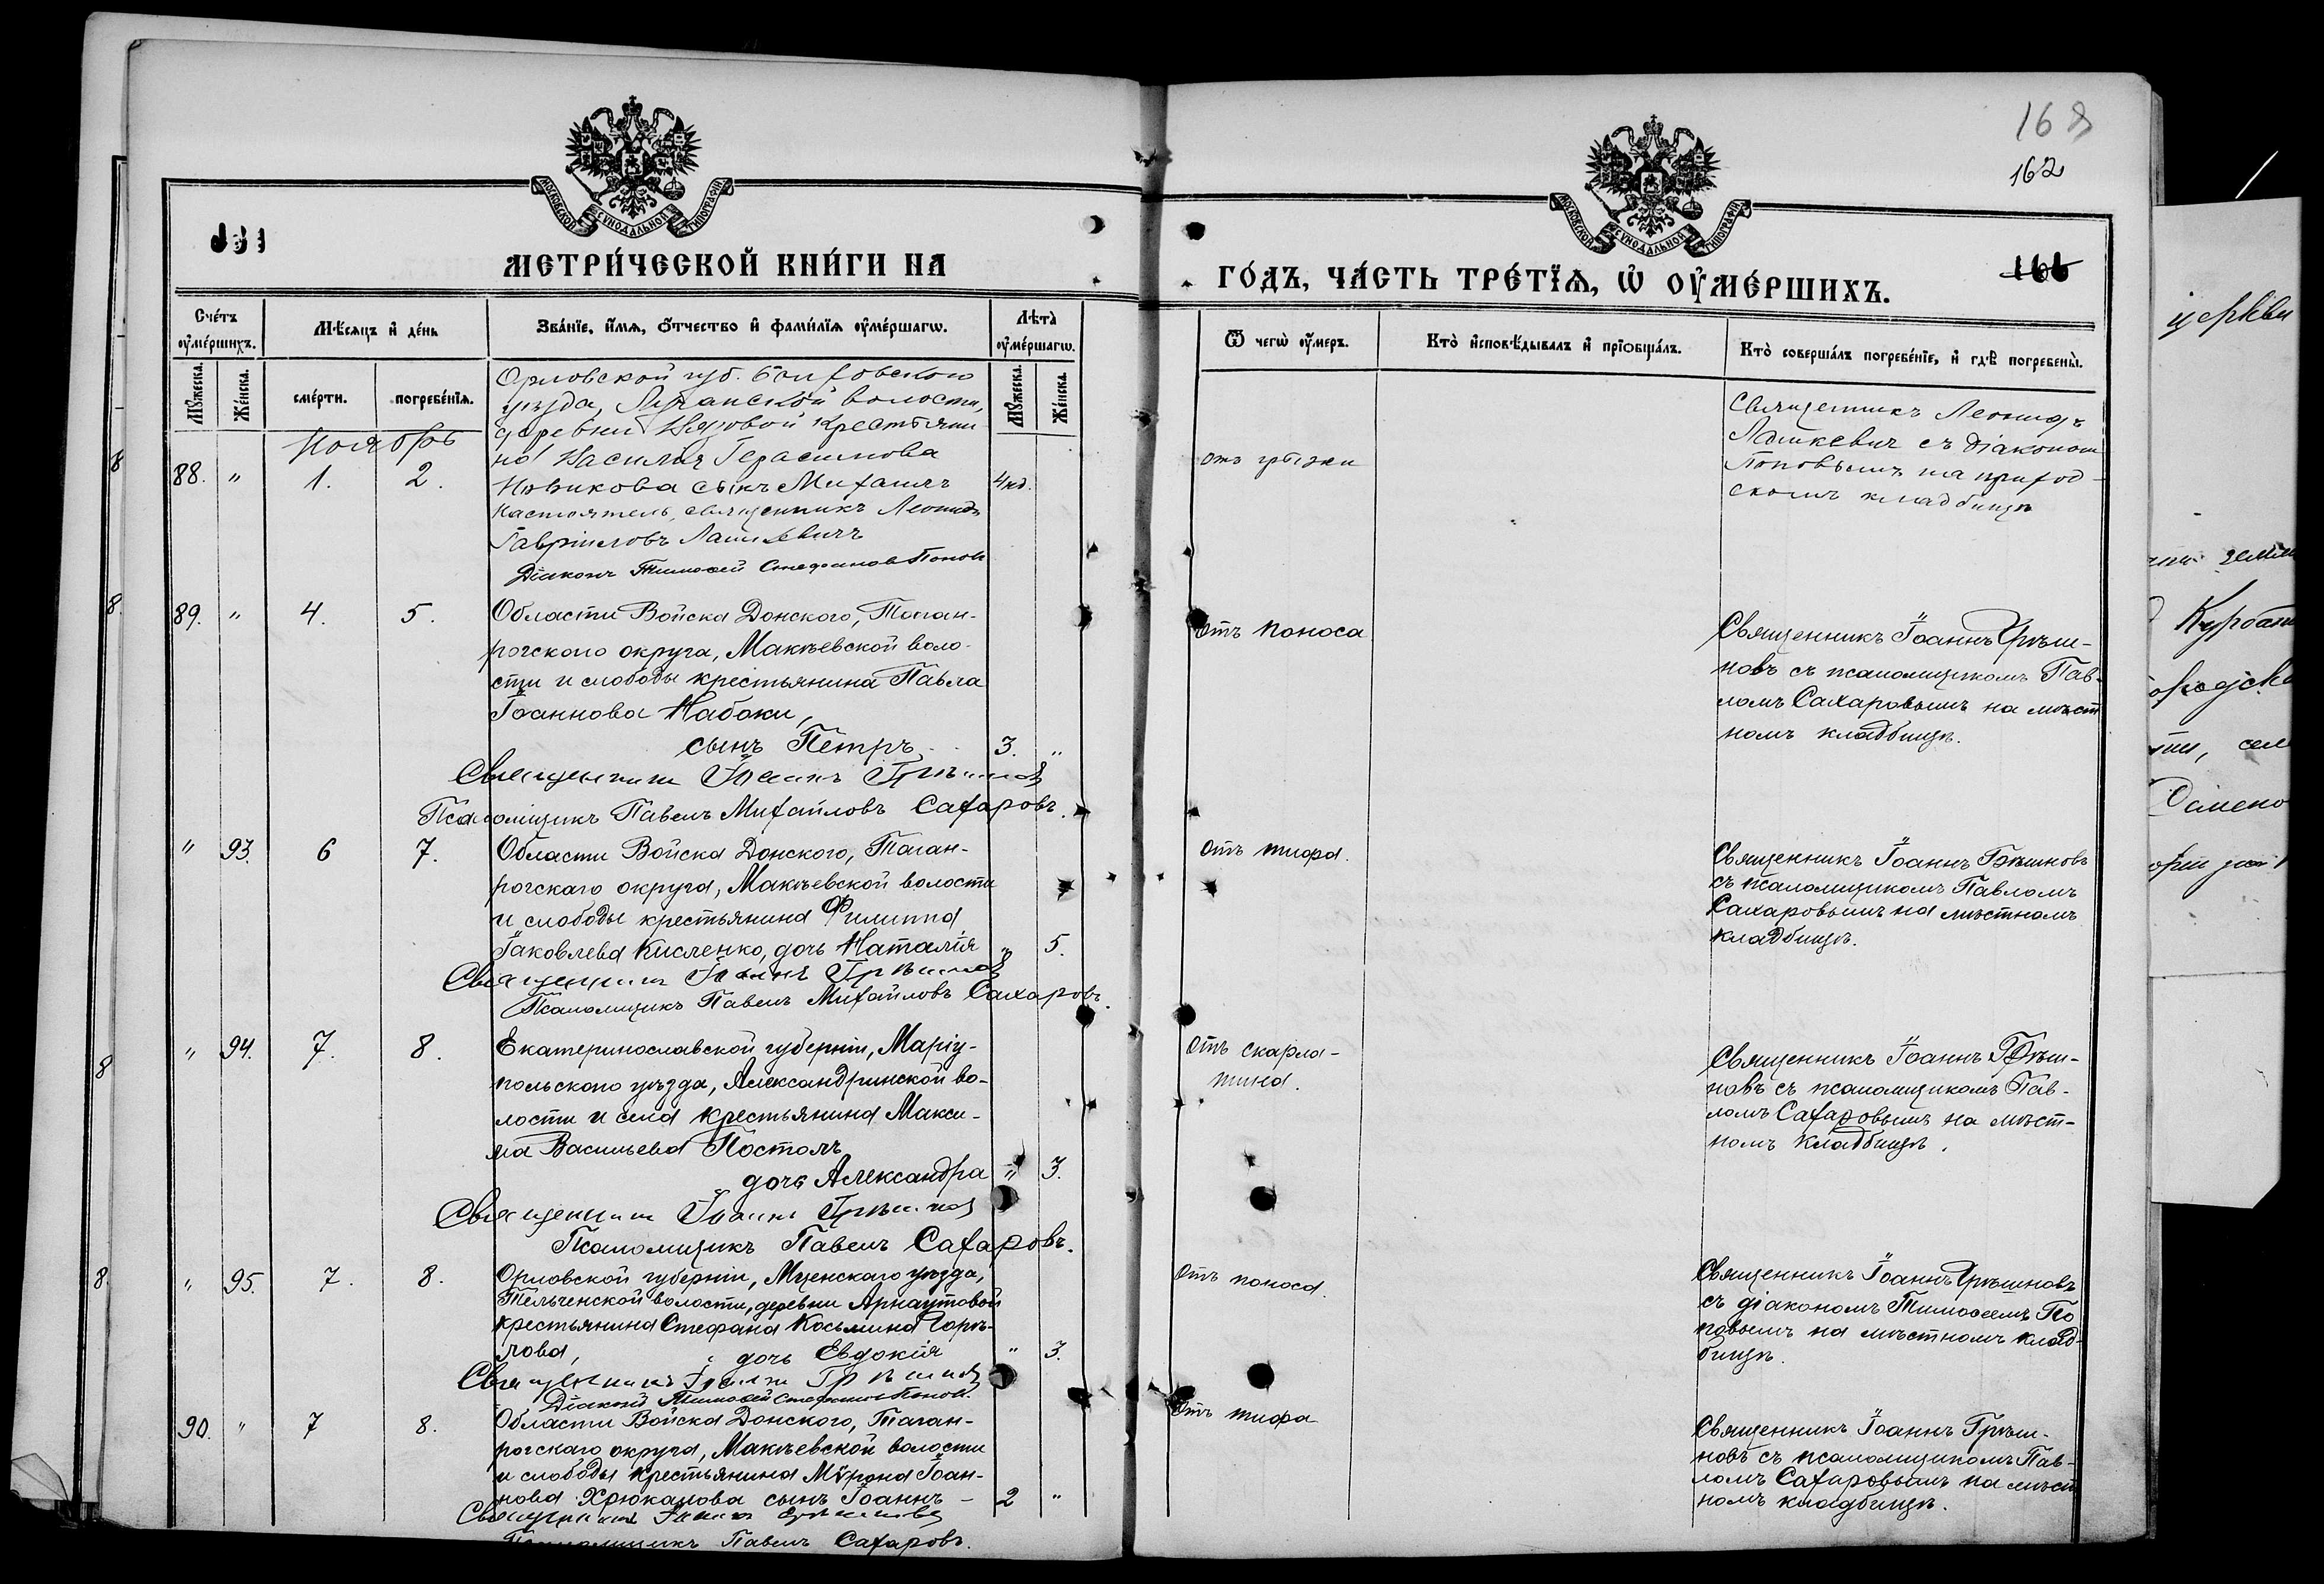 168
162
166
МОСКОВСКОЙ СѴНОДАЛЬНОЙ ТИПОГРАФІИ
МОСКОВСКОЙ СѴНОДАЛЬНОЙ ТИПОГРАФІИ
МЕТРИ́ЧЕСКОЙ КНИ́ГИ НА
ГО́ДЪ, ЧА́СТЬ ТРЕ́ТЇѦ, Ѡ҆ ОУ҆МЕ́РШИХЪ.
Сче́тъ оу҆ме́ршихъ.
Мѣ́сяцъ и҆ де́нь
Зва́нїе, и҆́мѧ, ѻ҆́тчество и҆ фами́лїѧ оу҆ме́ршагѡ.
Лѣта̀ оу҆ме́ршагѡ.
Ѿ чегѡ̀ оу҆́меръ.
Кто̀ и҆сповѣ́дывалъ и҆ прїѡбща́лъ.
Кто̀ соверша́лъ погребе́нїе, и҆ гдѣ̀ погребены̀.
Мꙋ́жеска.
Же́нска.
сме́рти.
погребе́нїѧ.
Мꙋ́жеска.
Же́нска.
Ноябрь
Орловской губ. Болховского
уѣзда, волости,
деревни крестьяни-
на Василія Герасимова
88. " 1. 2. Новикова сынъ Михаилъ 4 нд.
Настоятель, священникъ Леонидъ
Гавріиловъ Лашкевичъ
Діаконъ Тимоѳей Стефановъ Поповъ
отъ грыжи
Священникъ Леонидъ
Лашкевич съ діакономъ
Поповымъ на приход-
скомъ кладбищѣ
89. " 4. 5. Области Войска Донского, Таган-
рогскаго округа, Макѣевской воло-
сти и слободы крестьянина Павла
Іоаннова Набоки,
сынъ Петръ 3. "
Священникъ Іоаннъ Грѣшновъ
Псаломщикъ Павелъ Михайловъ Сахаровъ.
Отъ поноса
Священникъ Іоаннъ Грѣш-
новъ съ псаломщикомъ Пав-
ломъ Сахаровымъ на мѣст
номъ кладбищѣ.
" 93. 6 7. Области Войска Донского, Таган-
рогскаго округа, Макѣевской волости
и слободы крестьянина Филиппа
Іаковлева Кисленко, дочь Наталія " 5.
Священникъ Іоаннъ Грѣшновъ
Псаломщикъ Павелъ Михайловъ Сахаровъ.
Отъ тифа.
Священникъ Іоаннъ Грѣшновъ
съ псаломщикомъ Павломъ
Сахаровымъ на мѣстномъ
кладбищѣ.
" 94. 7. 8. Екатеринославской губерніи, Маріу-
польского уѣзда, Александринской во-
лости и села крестьянина Макси-
ма Васильева Постолъ
дочь Александра " 3.
Священникъ Іоаннъ Грѣшновъ
Псаломщикъ Павелъ Сахаровъ.
Отъ скарла-
тина.
Священникъ Іоаннъ Грѣш-
новъ съ псаломщикомъ Пав-
ломъ Сахаровымъ на мѣст-
номъ кладбищѣ.
" 95. 7. 8. Орловской губерніи, Мценскаго уѣзда,
Тельченской волости, деревни Арнаутовой
крестьянина Стефана Косьмина Горѣ-
лова, дочь Евдокія " 3.
Священникъ Іоаннъ Грѣшновъ
Діаконъ Тимоѳей Стефановъ Поповъ.
Отъ поноса.
Священникъ Іоаннъ Грѣшновъ
съ діакономъ Тимоѳеемъ По
повымъ на мѣстномъ клад-
бищѣ.
90. " 7 8. Области Войска Донского, Таган-
рогскаго округа, Макѣевской волости
и слободы крестьянина Мѵрона Іоан-
нова Хрюканова сынъ Іоаннъ - 2 "
Священникъ Іоаннъ Грѣшновъ
Псаломщикъ Павелъ Сахаровъ.
Отъ тифа
Священникъ Іоаннъ Грѣш-
новъ съ псаломщикомъ Пав-
ломъ Сахаровымъ на мѣст
номъ кладбищѣ.
8
8.
8
8.
церкви